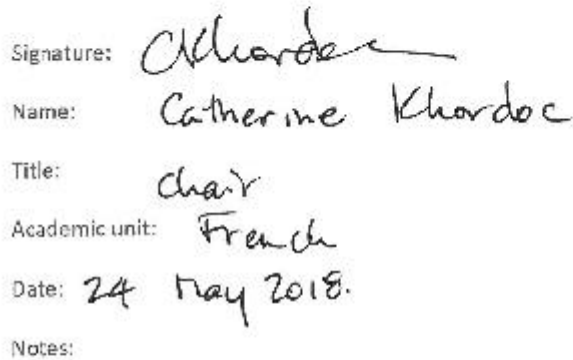 Signature: CKhordoc
Name: Catherine Khordoc
Title: Chair
Academic unit: French
Date: 24 May 2018.
Notes: